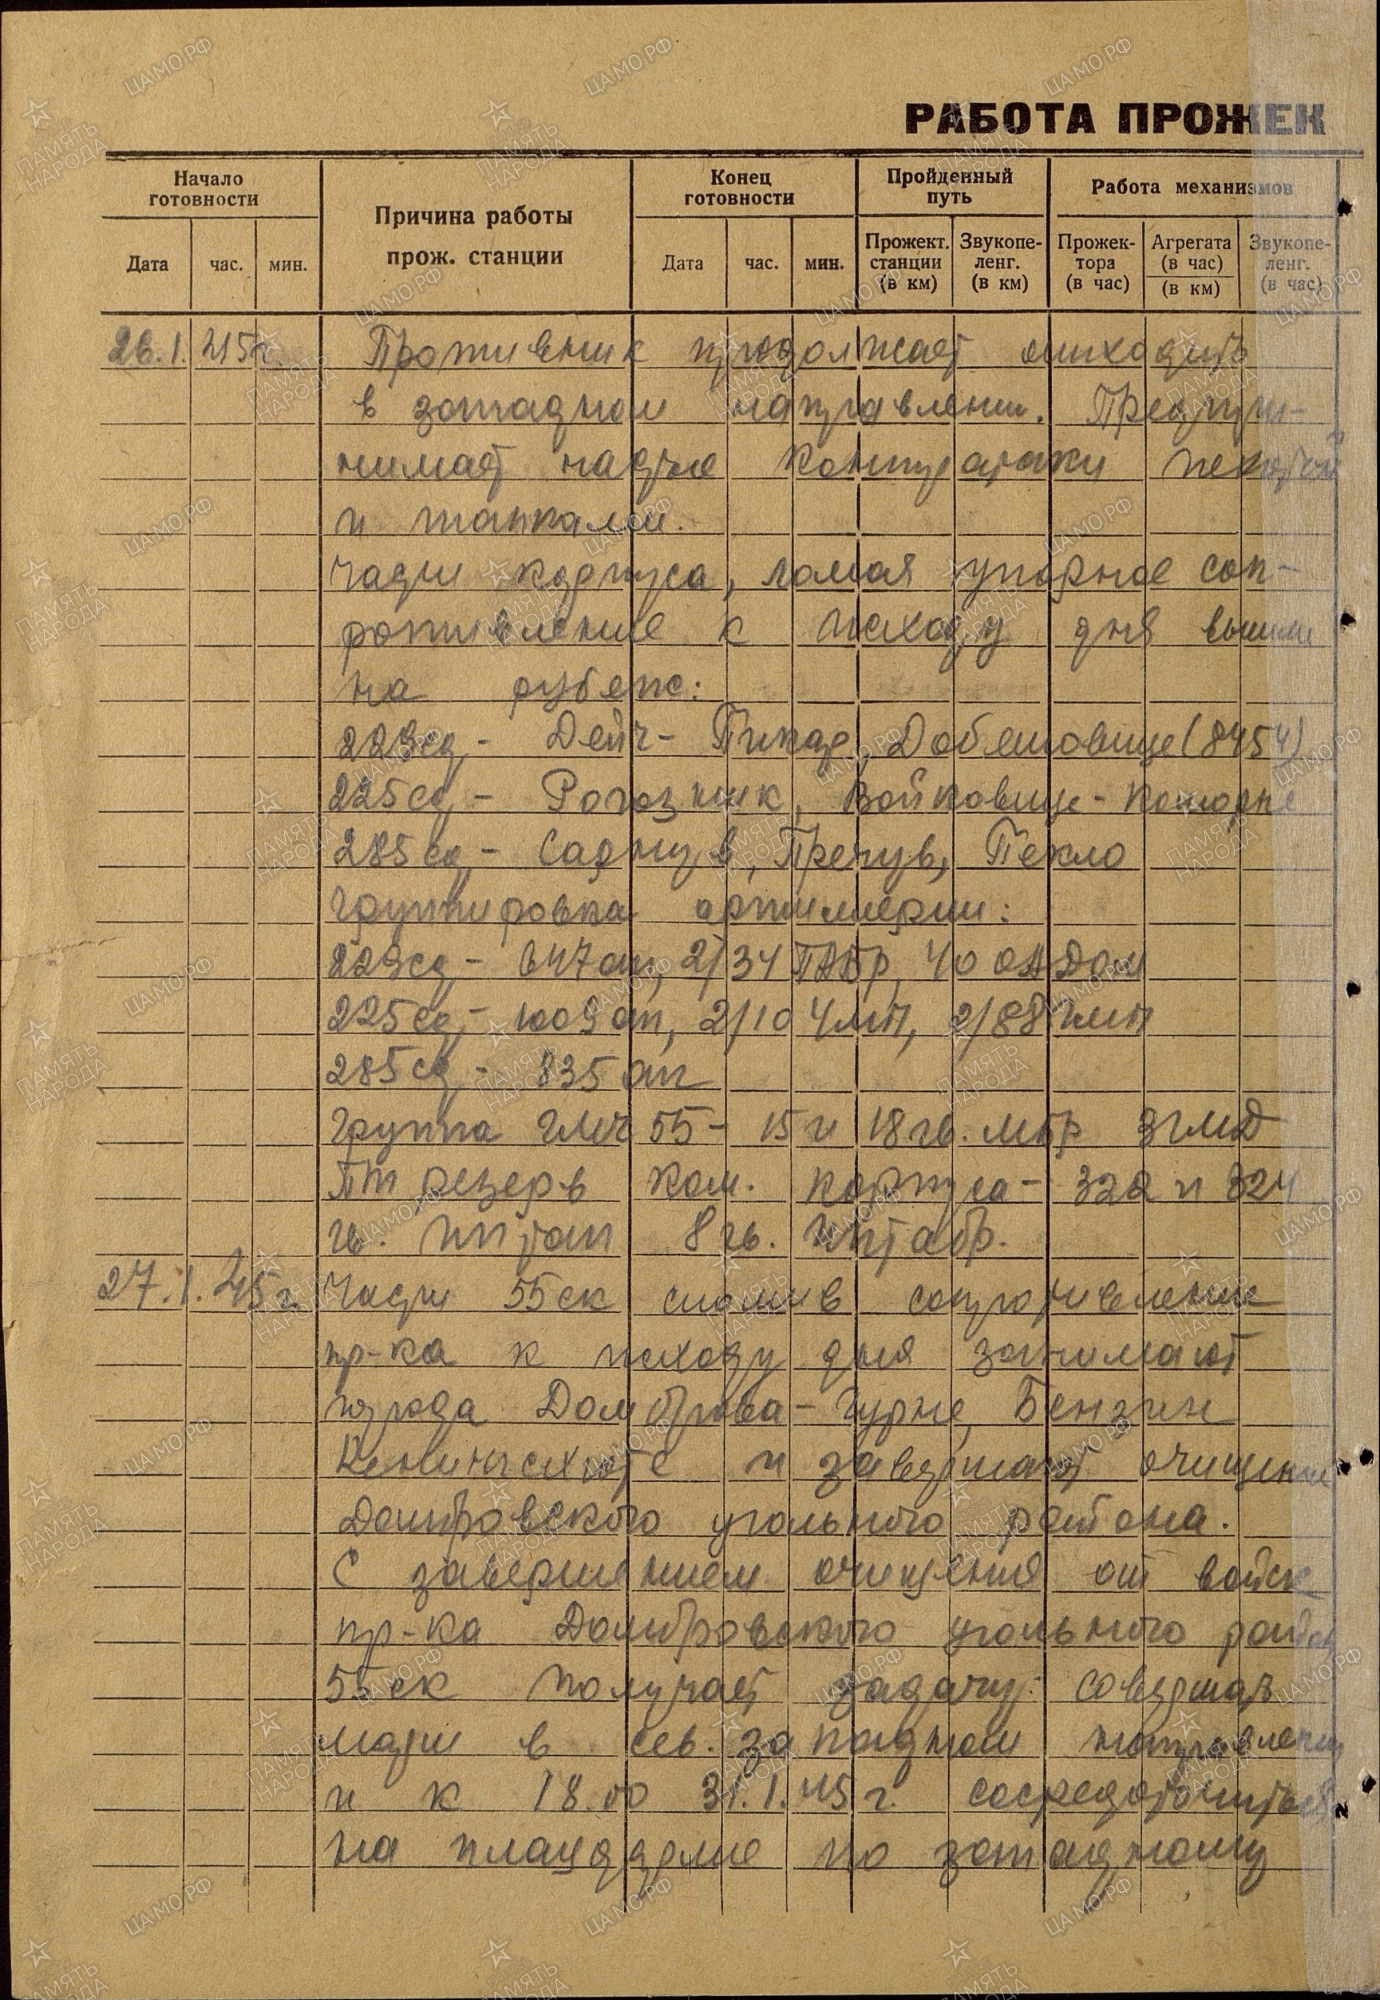 РАБОТА ПРОЖЕК
Начало готовности
Причина работы прож. станции
Конец готовности
Пройденный путь
Работа механизмов
Дата
час.
мин.
Дата
час.
мин.
Прожект. станции (в км)
Звукопе-ленг. (в км)
Прожек-тора (в час)
Агрегата (в час) (в км)
Звукопе-ленг. (в час)
26.1.45г. Противник продолжает отходить
в западном направлении. Предпри-
нимает частые контратаки пехотой
и танками.
Части корпуса, ломая упорное соп-
ротивление к исходу дня вышли
на рубеж:
229сд - Дейч-Пикар, Добешовице (8454)
225сд - Рогозник, Войковице-
285сд - Сарнув, Пречув, Пекло
Группировка артиллерии:
229сд - 647ап, 2/34 ПАБр, 40 ОАДом
225сд - 1009ап, 2/10 4МП, 2/88
285сд - 835 ап
Группа ГМЧ 55 - 15 и 18 гв. мбр 3гмд
ПТ резерв ком. корпуса - 322 и 324
гв. иптап 8 гв. иптабр.
27.1.45г. Части 55ск сломив сопротивление
пр-ка к исходу дня занимают
города Домброва-Гурне, Бензин
Кенигсхютте и завершают очищение
Домбровского угольного района.
С завершением очищения от войск
пр-ка Домбровского угольного района
55ск получает задачу: совершать
марш в сев. западном направлении
и к 18.00 31.1.45г. сосредоточиться
на плацдарме по западному